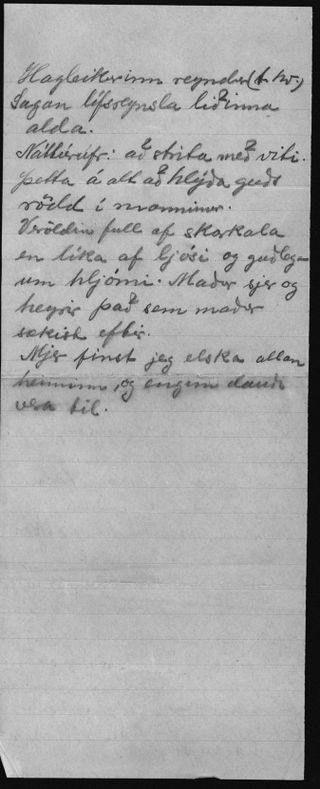 Hagleikurinn reyndur (t.hv.)
Sagan lífsreynsla liðinna
alda.
Náttúrufr: að strita með viti.
Þetta á alt að hlýða guðs
rödd í manninum.
Veröldin full af skarkala
en líka af ljósi og guðlegu-
um hljómi. Maður sjer og
heyrir það sem maður
sækist eftir.
Mjer finst jeg elska allan
heiminn, og engin dauði
vera til.